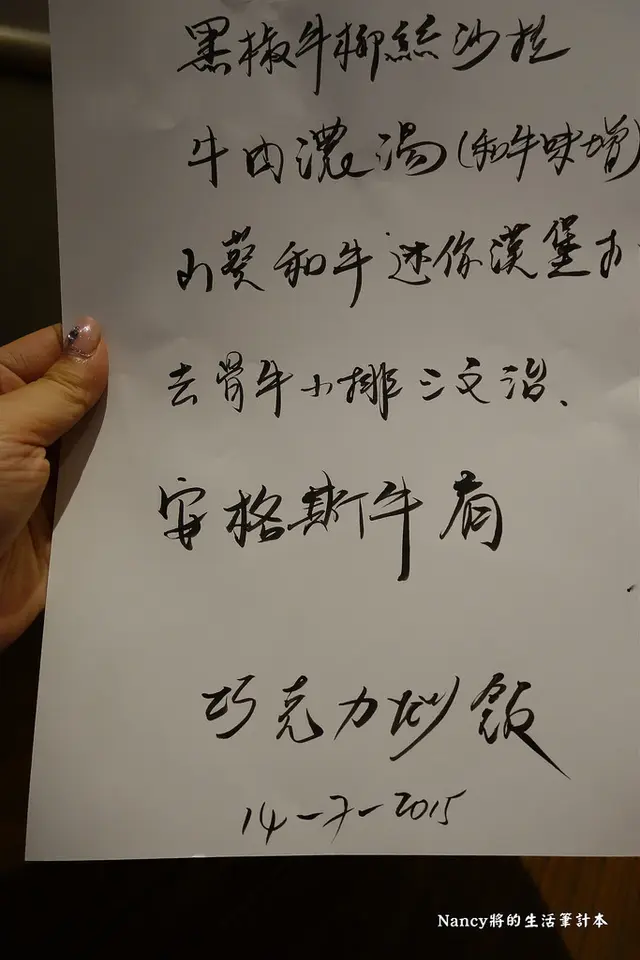 黑椒牛柳絲沙拉
牛肉濃湯(和牛味增)
山葵和牛迷你漢堡
去骨牛小排三文治、
安格斯牛肩
巧克力炒飯
14-7-2015
Nancy將的生活筆計本